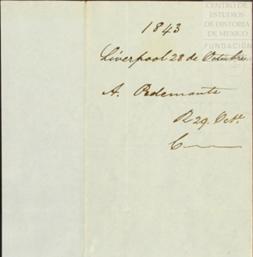 CENTRO DE
ESTUDIOS
DE HISTORIA
DE MEXICO
FUNDACIÓN
1843
Liverpool 28 de Octubre
A. Pedemonte
R 29. Oct.
C